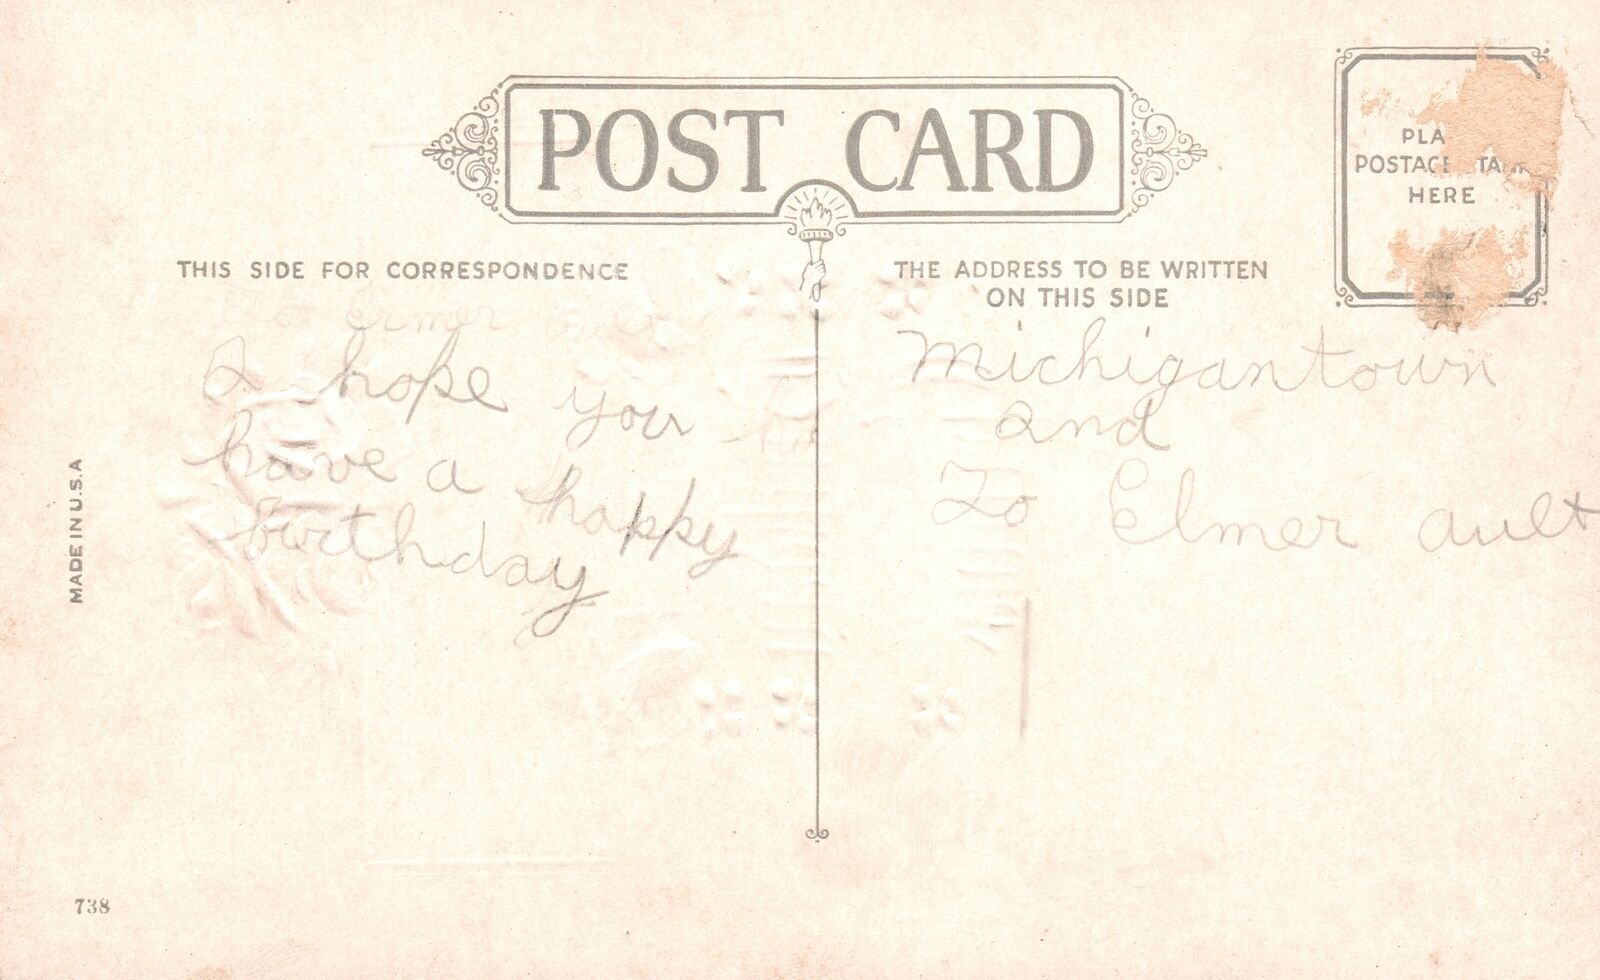 POST CARD
PLA
POSTAGE STAMP
HERE
THIS SIDE FOR CORRESPONDENCE
THE ADDRESS TO BE WRITTEN
ON THIS SIDE
To Ermer
I hope you
have a happy
birthday
Michigantown
and
To Elmer Ault
MADE IN U.S.A
738